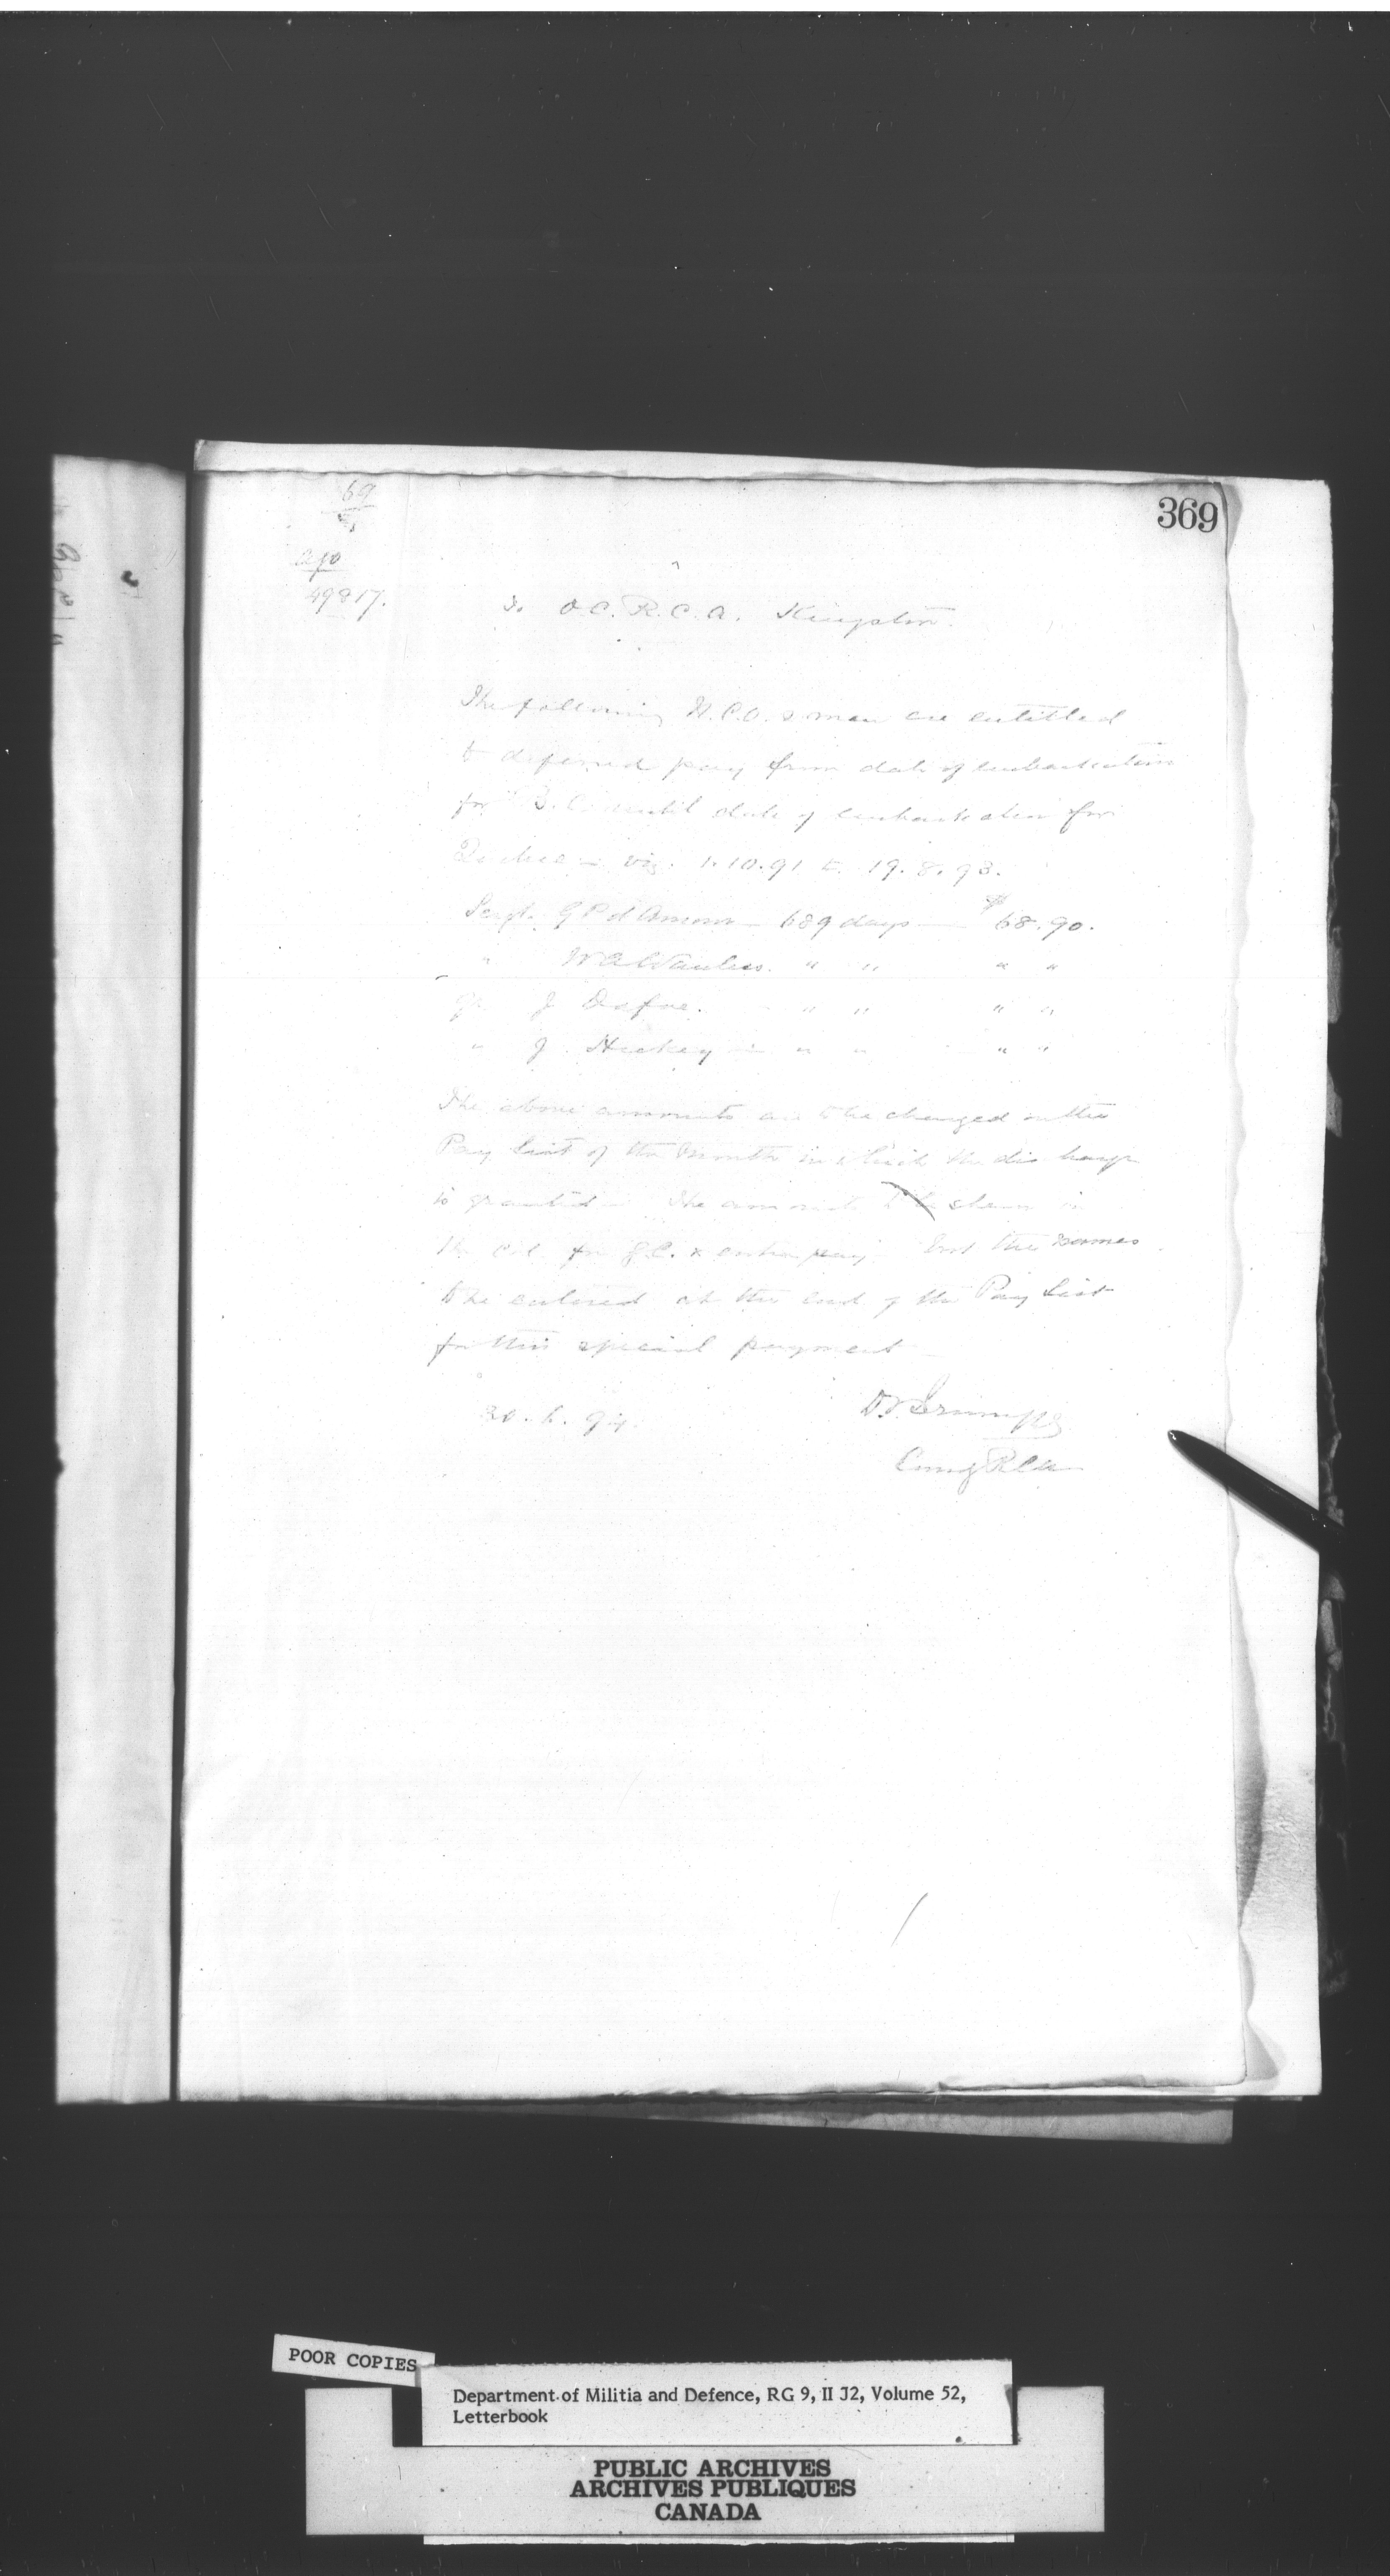 369
69
a.f.o
49817.
To O.C. R.C.A. Kingston.
The following N.C.O. & men are entitled
to deferred pay from date of embarkation
for B.C. until date of embarkation for
Quebec – viz. 1.10.91 to 19.8.93.
Sergt. G P d'Amour – 689 days — $68.90.
" W A " " " "
Gr J Dafoe. " " " "
" J. Hickey – " " " "
The above amounts are to be charged on the
Pay List of the Month in which the discharge
is granted – The amounts to be shewn in
the Col. for G.C. & extra pay – but the names
to be entered at the end of the Pay List
for this special payment –
20.6.94
Comg RCA
POOR COPIES
Department of Militia and Defence, RG 9, II J2, Volume 52,
Letterbook
PUBLIC ARCHIVES
ARCHIVES PUBLIQUES
CANADA